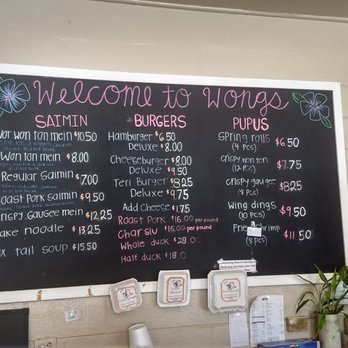 Welcome to Wongs
SAIMIN
War won ton mein $10.50
Won ton mein $8.00
Regular Saimin $7.00
Roast Pork Saimin $9.50
Crispy gaugee mein $12.25
Cake noodle $13.25
Ox tail soup $15.50
BURGERS
Hamburger $6.50
Deluxe $8.00
Cheeseburger $8.00
Deluxe $8.55
Teri Burger $8.25
Deluxe $9.75
Add Cheese $1.75
Roast Pork $16.00 per pound
Char siu $16.00 per pound
Whole duck $28.0
Half duck $18.0
PUPUS
Spring rolls $6.50
(4 pcs)
Crispy won ton $7.75
(12 pcs)
Crispy gau gee $8.25
(8 pcs)
Wing dings $9.50
(10 pcs)
Fried $11.50
(8 pcs)